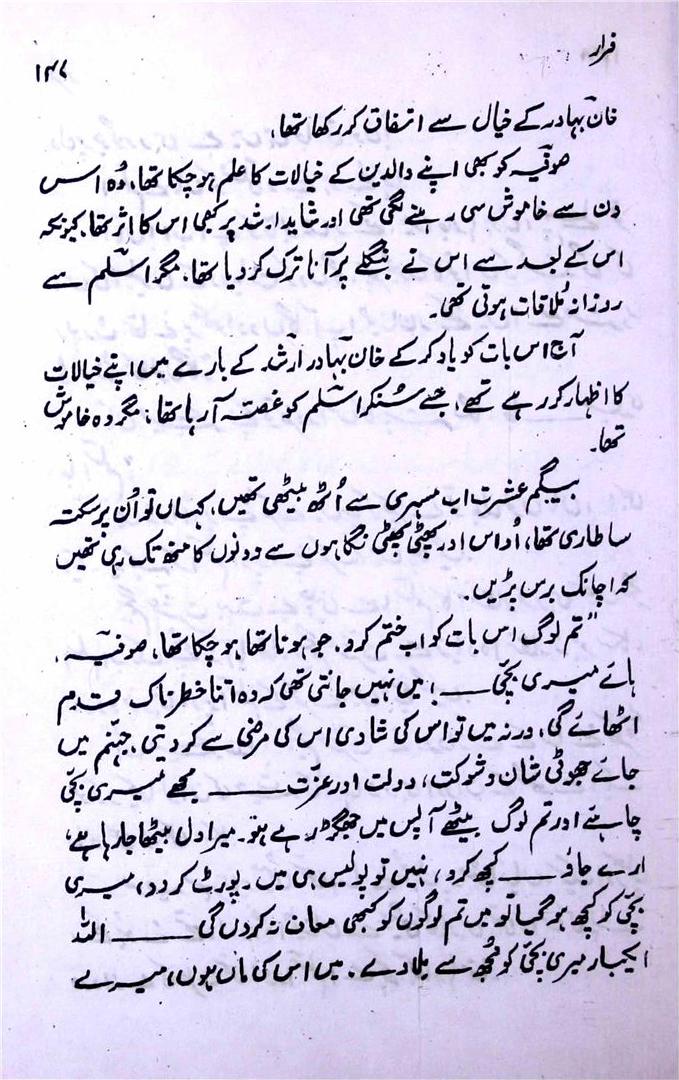 فرار
۱۴۷
خان بہادر کے خیال سے اتفاق کر رکھا تھا،
صوفیہ کو بھی اپنے والدین کے خیالات کا علم ہو چکا تھا، وُہ اس
دن سے خاموش سی رہنے لگی تھی اور شاید ارشد پر بھی اس کا اثر تھا، کیونکہ
اس کے بعد سے اس نے بنگلے پر آنا ترک کر دیا تھا، مگر اسلم سے
روزانہ مُلاقات ہوتی تھی۔
آج اس بات کو یاد کر کے خان بہادر ارشد کے بارے میں اپنے خیالات
کا اظہار کر رہے تھے، جسے سُنکر اسلم کو غصّہ آ رہا تھا، مگر وہ خاموش
تھا۔
بیگم عشرت اب مسہری سے اُٹھ بیٹھی تھیں، کہاں تو اُن پر سکتہ
سا طاری تھا، اُداس اور پھٹی پھٹی نگاہوں سے دونوں کا منھ تک رہی تھیں
کہ اچانک برس پڑیں۔
"تم لوگ اس بات کو اب ختم کرو۔ جو ہونا تھا ہو چکا تھا، صوفیہ۔
ہائے میری بچّی ـــــ! میں نہیں جانتی تھی کہ وہ اتنا خطرناک قدم
اٹھائے گی، ورنہ میں تو اس کی شادی اس کی مرضی سے کر دیتی، جہنّم میں
جائے جھوٹی شان و شوکت، دولت اور عزّت ـــــ مجھے میری بچّی
چاہئے اور تم لوگ بیٹھے آپس میں جھگڑ رہے ہو۔ میرا دل بیٹھا جا رہا ہے،
ارے جاؤ ـــــ کچھ کرو، نہیں تو پولیس ہی میں رپورٹ کر دو، میری
بچّی کو کچھ ہو گیا تو میں تم لوگوں کو کبھی معاف نہ کروں گی ـــــ اللہ
ایکبار میری بچّی کو مُجھ سے ملا دے۔ میں اس کی ماں ہوں، میرے